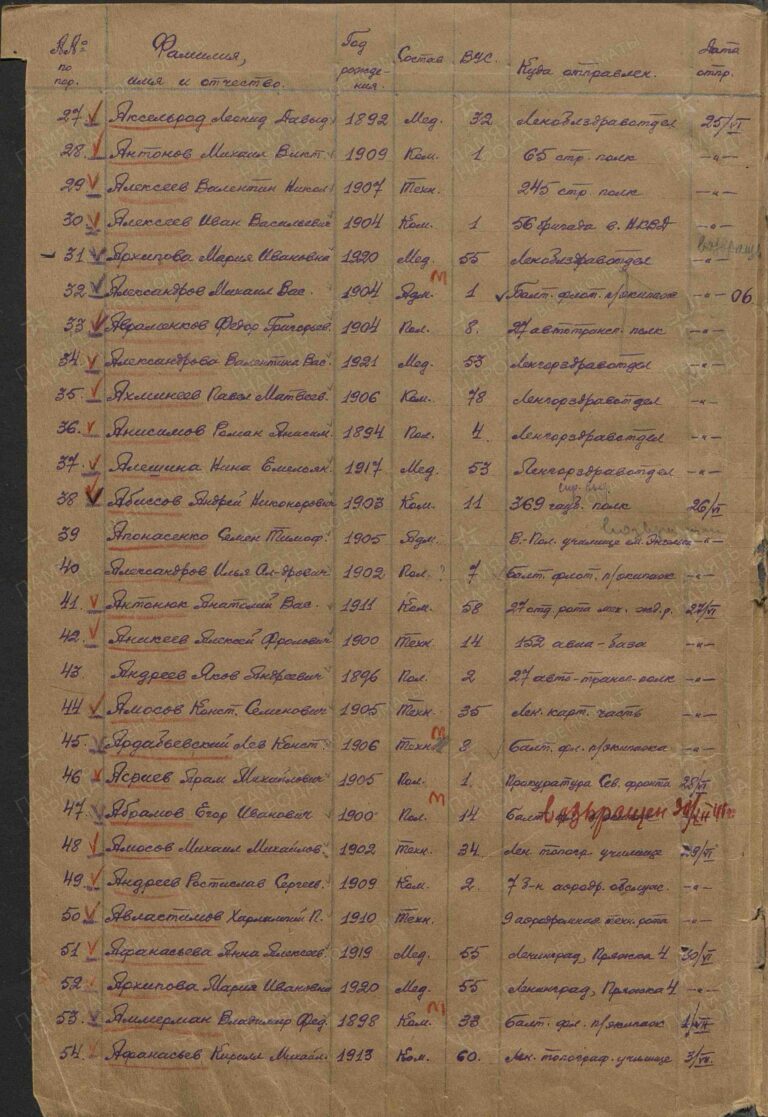 №№ по пор. Фамилия, имя и отчество. Год рождения. Состав ВУС. Куда отправлен. Дата отпр.
27. Аксельрод Леонид Давыд. 1892 Мед. 32 Леноблздравотдел 25/VI
28. Антонов Михаил Викт. 1909 Ком. 1 65 стр. полк -"-
29. Алексеев Валентин Никол. 1907 Техн. 245 стр. полк -"-
30. Алексеев Иван Васильевич 1904 Ком. 1 56 бригада в. НКВД -"-
- 31. Архипова Мария Ивановна 1920 Мед. 55 Леноблздравотдел -"-
32. Александров Михаил Вас. 1904 Адм. 1 Балт. флот. п/экипаж -"- 06
33. Авраменков Федор Григорьев. 1904 Пол. 8. 27 автотрансп. полк -"-
34. Александрова Валентина Вас. 1921 Мед. 53 Ленгорздравотдел -"-
35. Ахминеев Павел Матвеев. 1906 Ком. 78 Ленгорздравотдел -"-
36. Анисимов Роман Анисим. 1894 Пол. 4 Ленгорздравотдел -"-
37. Алешина Нина Емельян. 1917 Мед. 53 Ленгорздравотдел -"-
38 Абиссов Андрей Никонорович 1903 Ком. 11 369 полк 26/VI
39 Апонасенко Семен Тимоф. 1905 Адм. В.-Пол. училище им. Энгельса -"-
40 Александров Илья Ал-дрович 1902 Пол. ? 7 Балт. флот. п/экипаж -"-
41. Антонюк Анатолий Вас. 1911 Ком. 58 27 отд. рота 27/VI
42. Аникеев Алексей Фролович 1900 Техн. 14 152 авиа-база -"-
43. Андреев Яков Андреевич 1896 Пол. 2 27 авто-трансп-полк -"-
44 Амосов Конст. Семенович 1905 Техн. 35 Лен. карт. часть -"-
45. Ардабьевский Лев Конст. 1906 Техн. 8 Балт. фл. п/экипаж -"-
46 Асриев Арам Михайлович 1905 Пол. 1. Прокуратура Сев. фронта 28/VI
47. Абрамов Егор Иванович 1900 Пол. 14 Балт. возвращен
48 Амосов Михаил Михайлов. 1902 Техн. 34 Лен. топогр. училище 29/VI
49. Андреев Ростислав Сергеев. 1909 Ком. 2. 7 3-н аэродр. обслуж. -"-
50 Авластимов Харлампий П. 1910 Техн. 9 аэродромная техн. рота -"-
51 Афанасьева Анна Алексеев. 1919 Мед. 55 Ленинград, Пряжка 4 30/VI
52. Архипова Мария Ивановна 1920 Мед. 55 Ленинград, Пряжка 4 -"-
53. Аммерман Владимир Фед. 1898 Ком. 33 Балт. фл. п/экипаж 1/VII
54. Афанасьев Кирилл Михайл. 1913 Ком. 60. Лен. топограф. училище 3/VII.